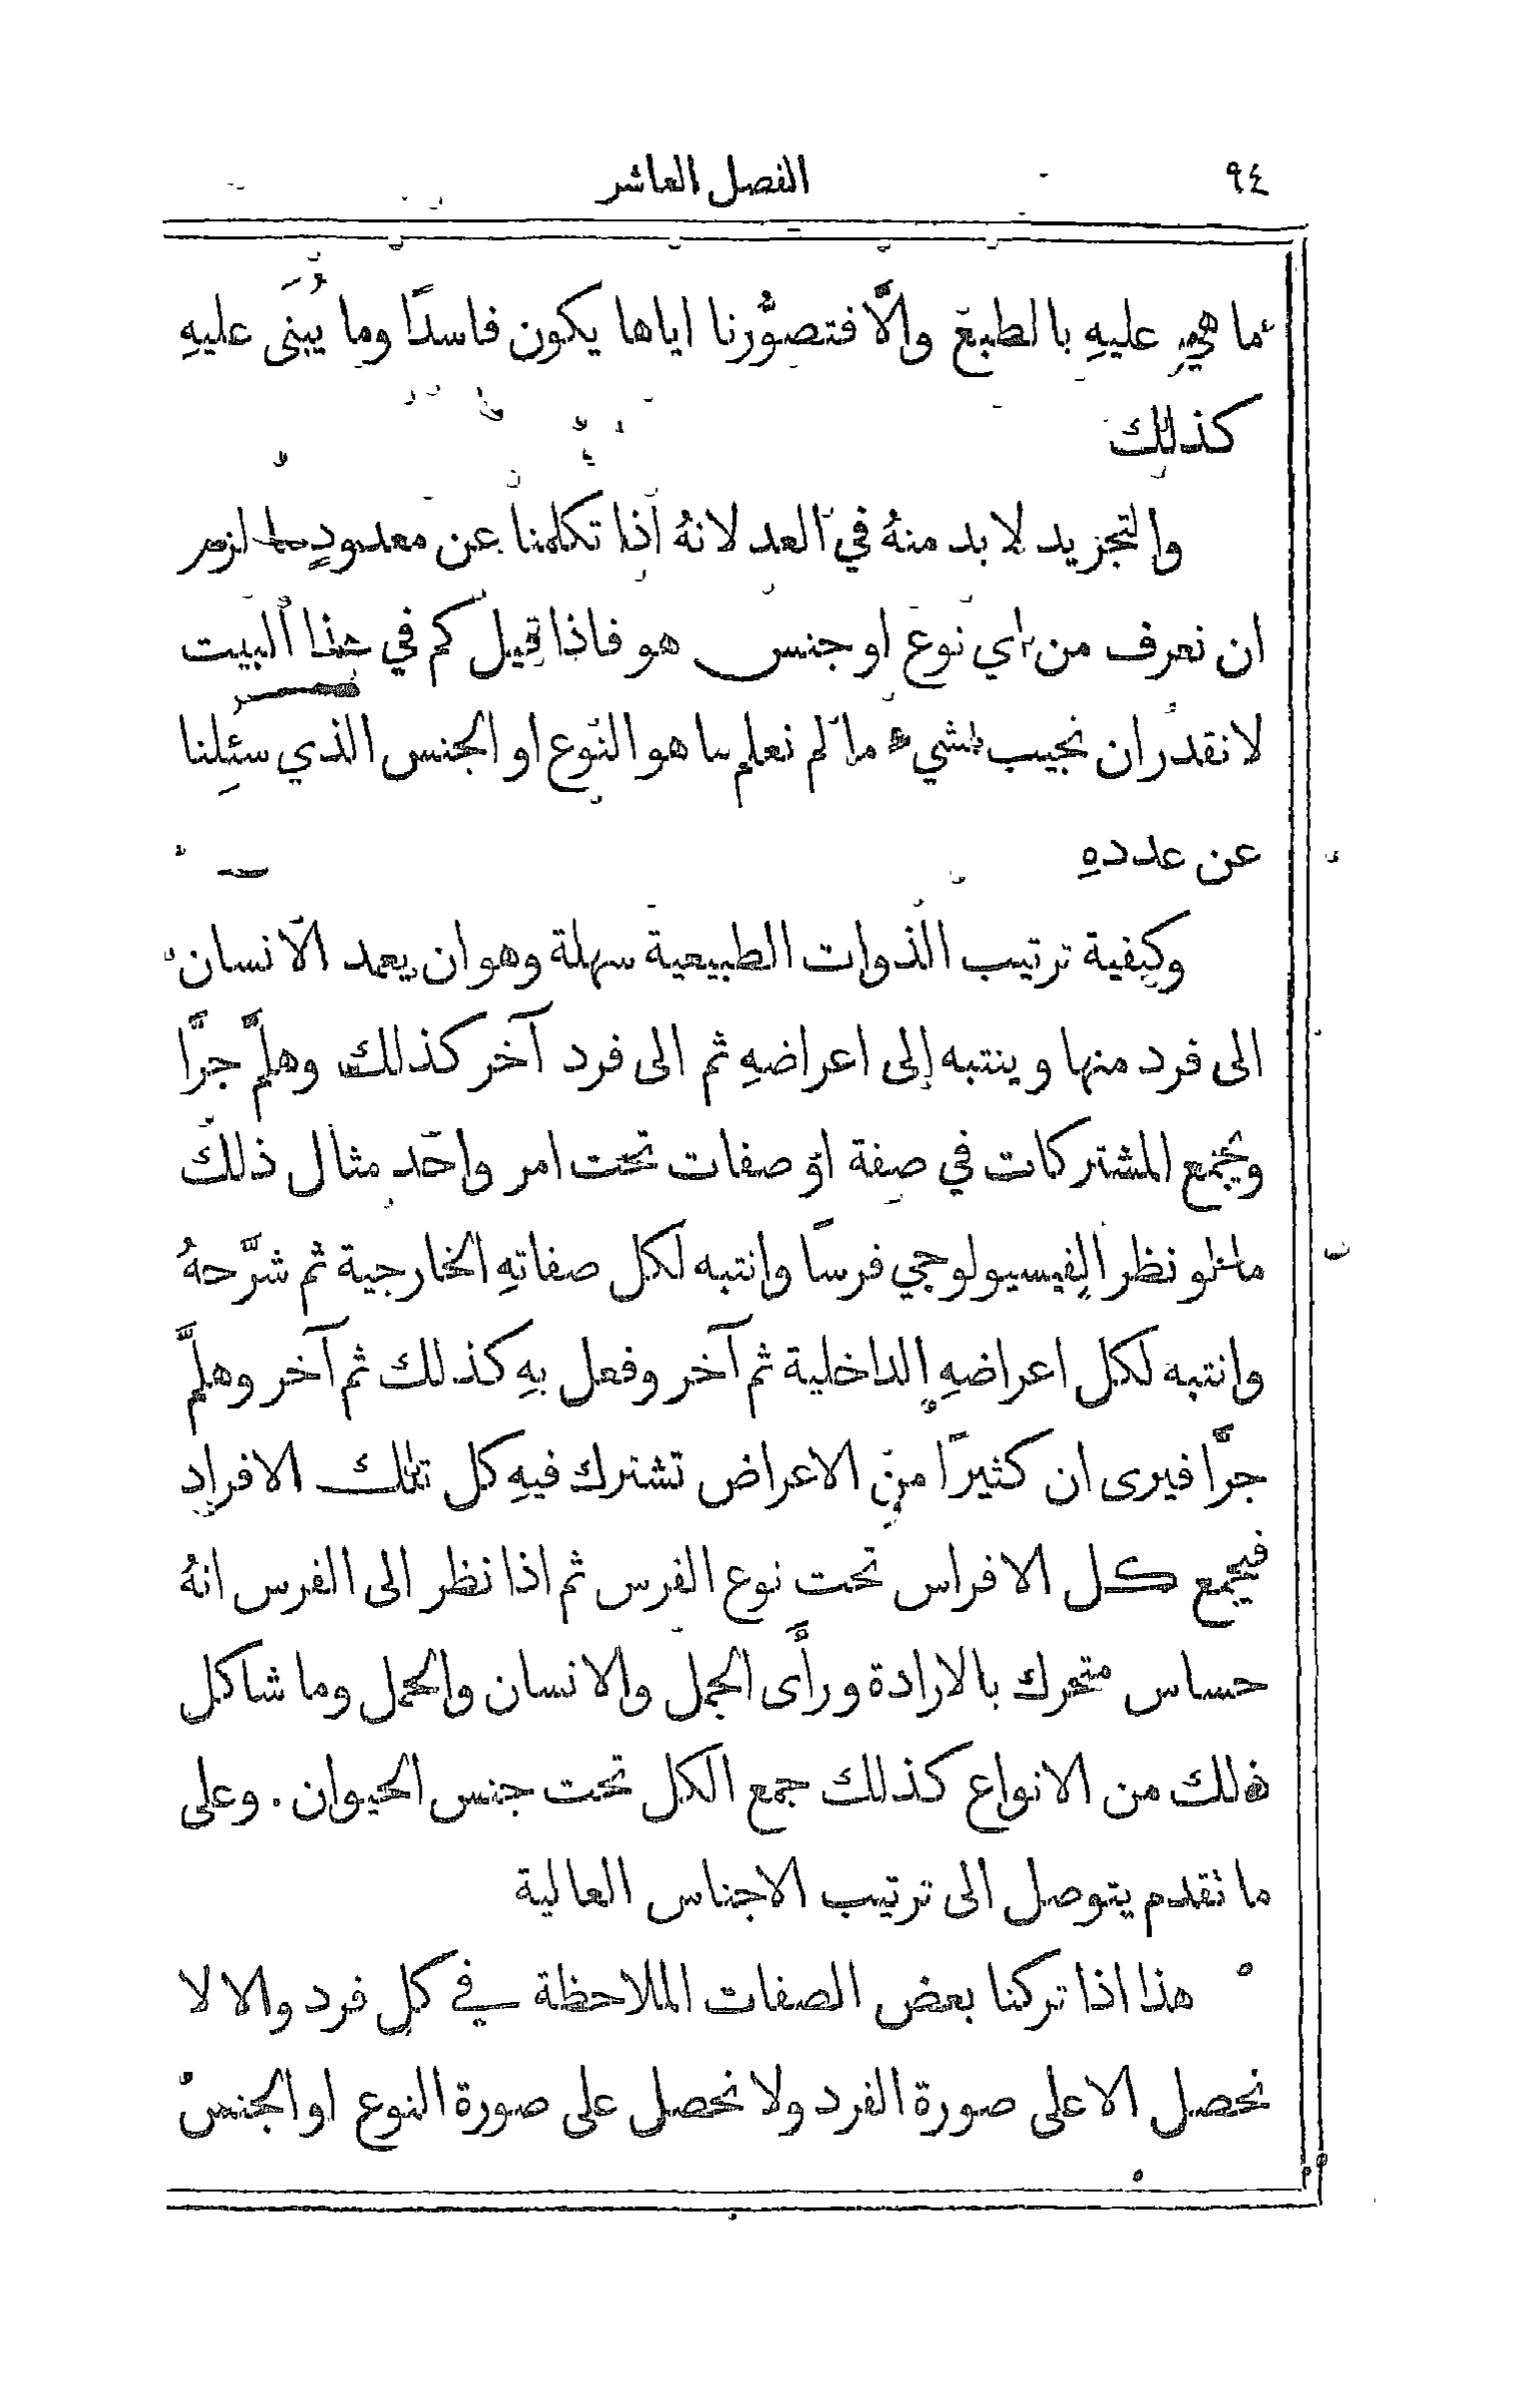 ٩٤
الفصل العاشر
ما هي عليهِ بالطبع والَّا فتصوُّرنا اياها يكون فاسدًا وما يُبنَى عليهِ
كذلك
والتجريد لا بد منهُ في العد لانهُ اذا تكلمنا عن معدودٍ لزم
ان نعرف من اي نوع او جنس هو فاذا قيل كم في هذا البيت
لا نقدر ان نجيب بشيء ما لم نعلم ما هو النوع او الجنس الذي سئِلنا
عن عددهِ
وكيفية ترتيب الذوات الطبيعية سهلة وهو ان يعمد الانسان
الى فرد منها وينتبه إلى اعراضهِ ثم الى فرد آخر كذلك وهلمَّ جرَّا
ويجمع المشتركات في صفة او صفات تحت امر واحد مثال ذلك
ما لو نظر الفيسيولوجي فرسًا وانتبه لكل صفاتهِ الخارجية ثم شرَّحهُ
وانتبه لكل اعراضهِ الداخلية ثم آخر وفعل بهِ كذلك ثم آخر وهلمَّ
جرَّا فيرى ان كثيرًا من الاعراض تشترك فيهِ كل تلك الافراد
فيجمع كل الافراس تحت نوع الفرس ثم اذا نظر الى الفرس انهُ
حساس متحرك بالارادة ورأَى الجمل والانسان والحمل وما شاكل
ذلك من الانواع كذلك جمع الكل تحت جنس الحيوان . وعلى
ما تقدم يتوصل الى ترتيب الاجناس العالية
هذا اذا تركنا بعض الصفات الملاحظة في كل فرد والا لا
نحصل الا على صورة الفرد ولا نحصل على صورة النوع او الجنس